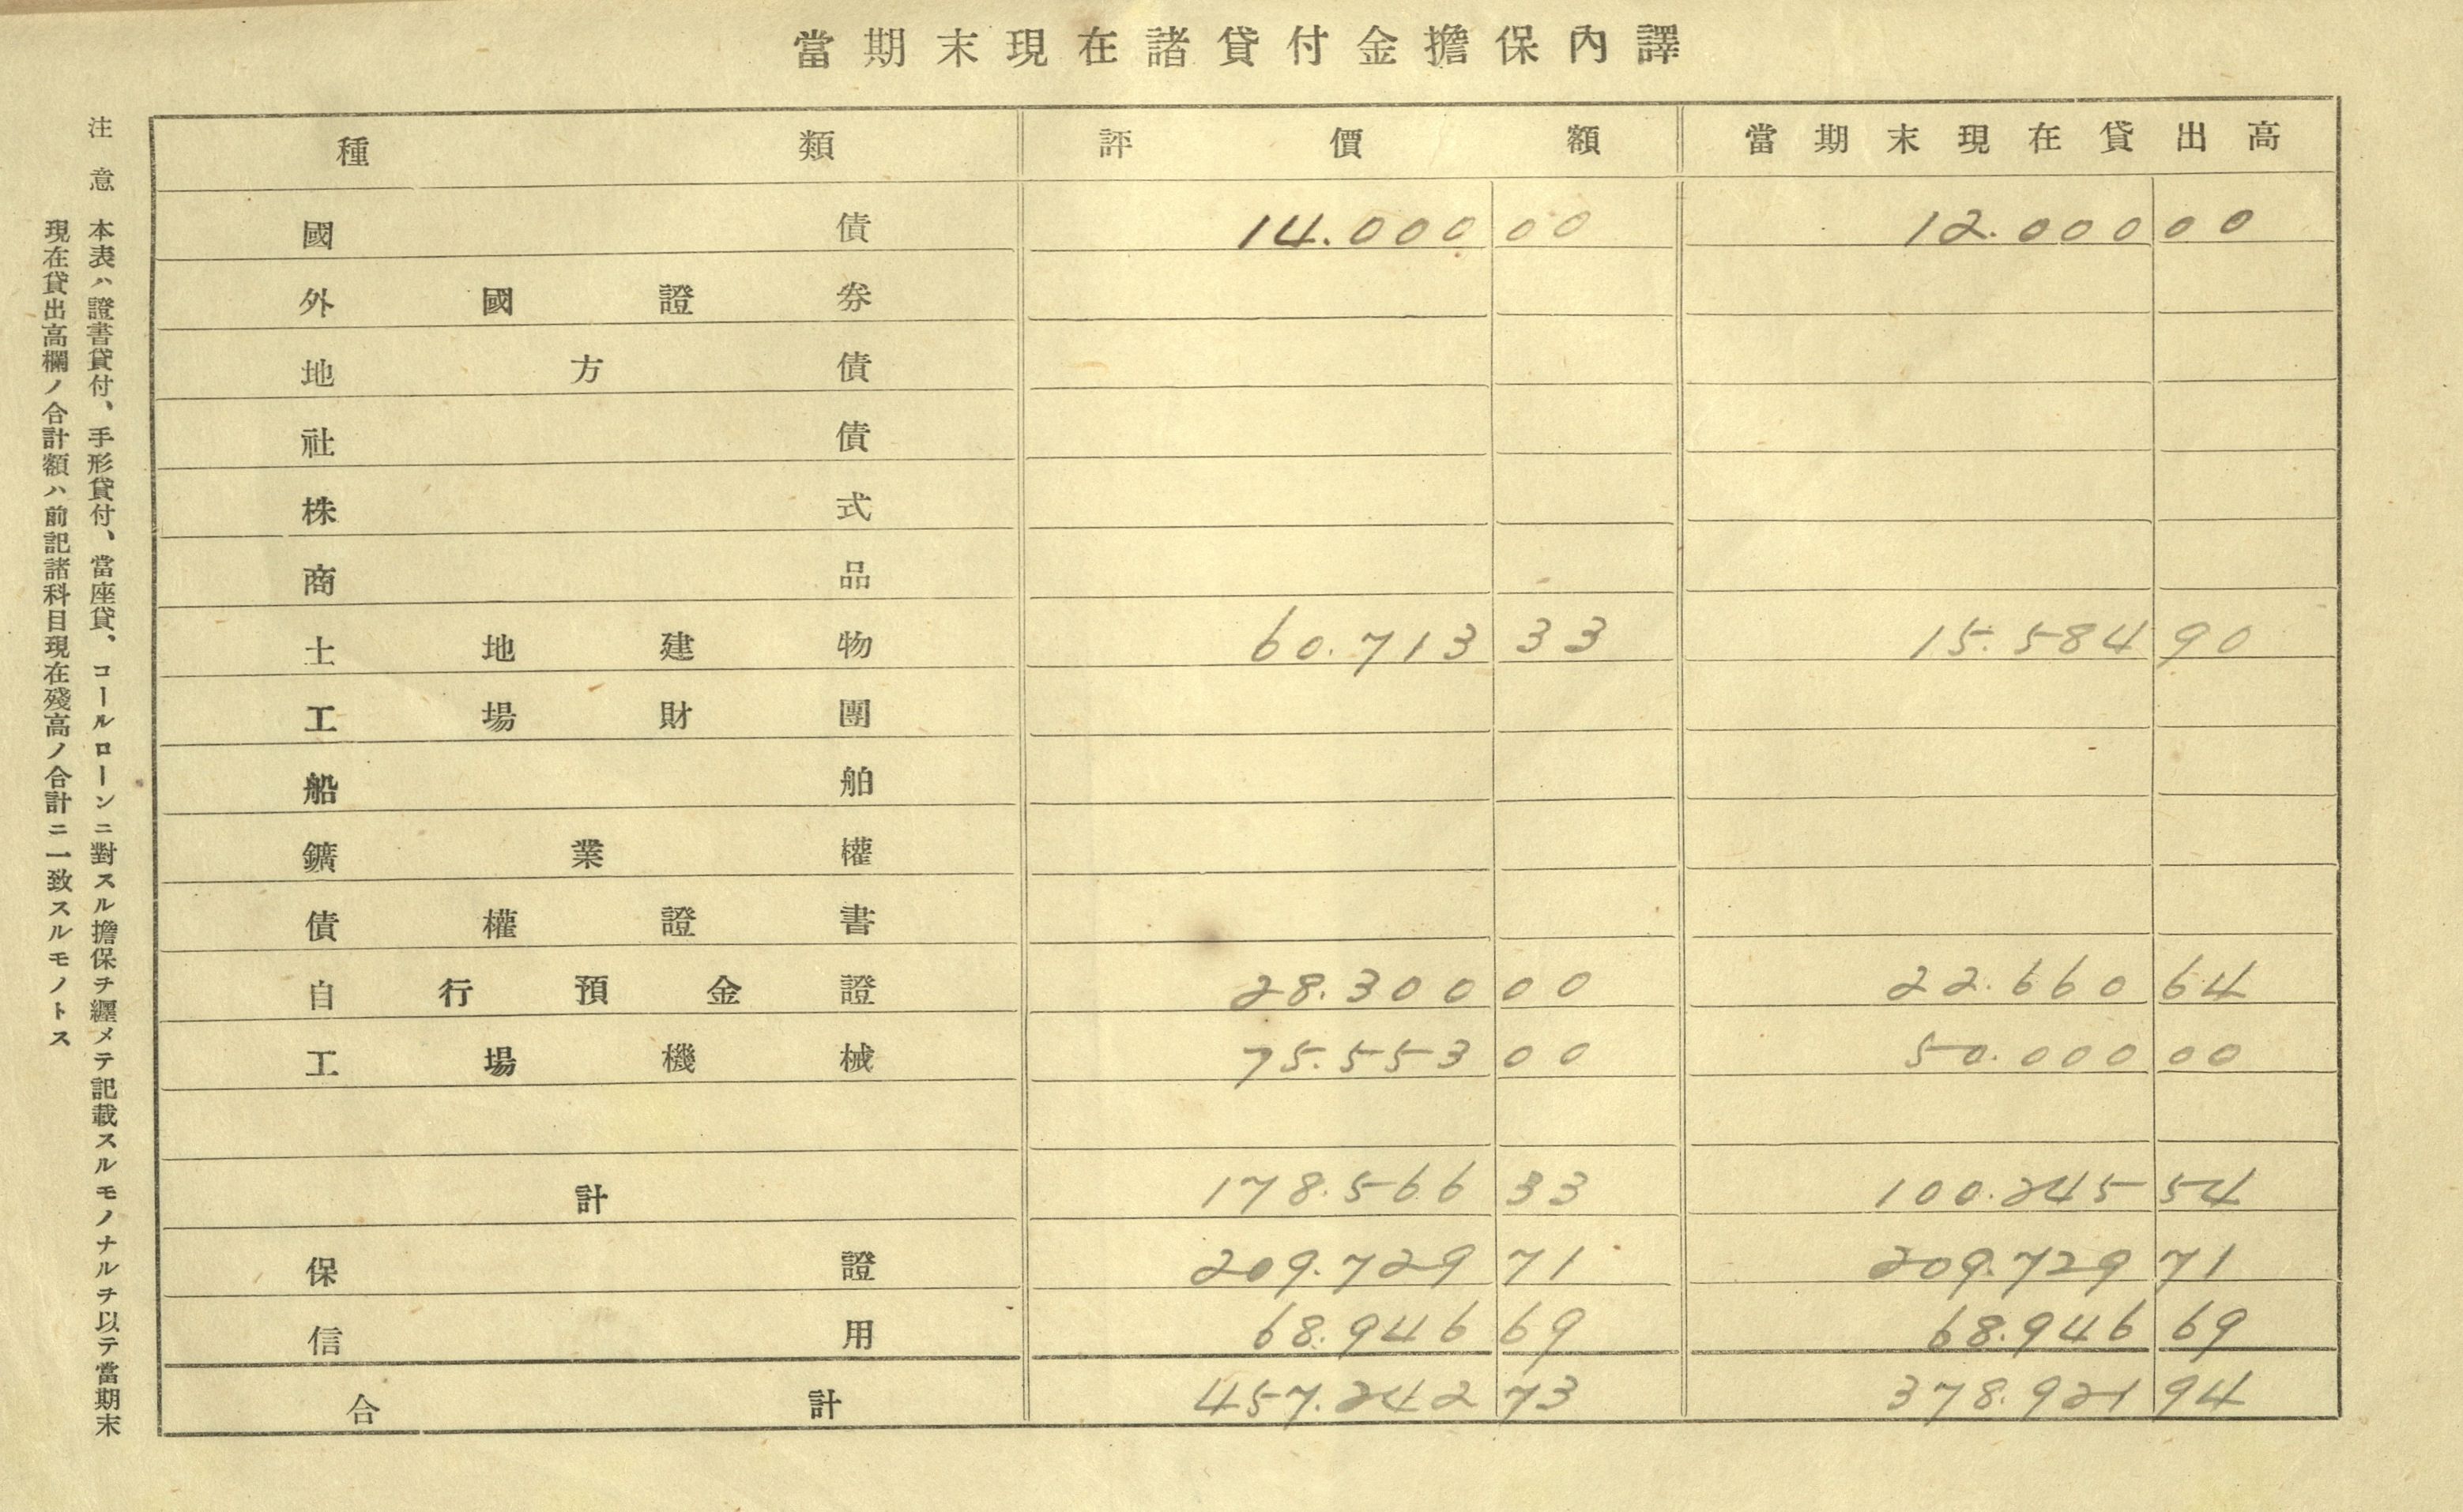 當期末現在諸貸付金擔保內譯
種類 評價額 當期末現在貸出高
國債 14.000 00 12.000 00
外國證券
地方債
社債
株式
商品
土地建物 60.713 33 15.584 90
工場財團
船舶
鑛業權
債權證書
自行預金證 28.300 00 22.660 64
工場機械 75.553 00 50.000 00
計 178.566 33 100.245 54
保證 209.729 71 209.729 71
信用 68.946 69 68.946 69
合計 457.242 73 378.921 94
注意 本表ハ證書貸付、手形貸付、當座貸、コールローンニ對スル擔保ヲ纒メテ記載スルモノナルヲ以テ當期末
現在貸出高欄ノ合計額ハ前記諸科目現在殘高ノ合計ニ一致スルモノトス